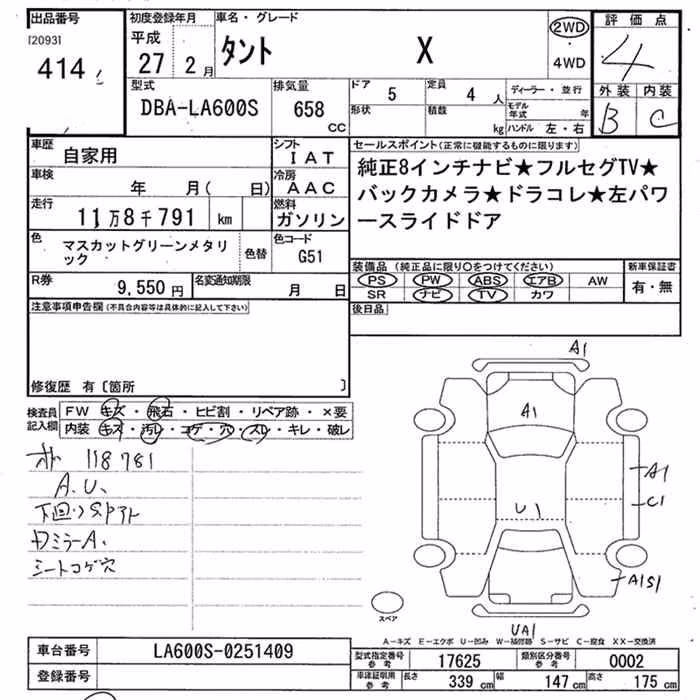 出品番号 初度登録年月 車名・グレード 2WD 評価点
[2093] 平成
414 27 年 2 月 タント X ・ 4WD 4
型式 排気量 ドア 5 定員 4 人 ディーラー・並行 外装 内装
DBA-LA600S 658 CC 形状 積載 kg モデル年式 年 B C
ハンドル 左・右
車歴 自家用 シフト IAT セールスポイント(正常に機能するものに限ります)
車検 年 月( 日) 冷房 AAC 純正8インチナビ★フルセグTV★
走行 11万8千791 km 燃料 ガソリン バックカメラ★ドラコレ★左パワ
ースライドドア
色 マスカットグリーンメタリック 色替 色コード G51
装備品(純正品に限り○をつけてください) 新車保証書
R券 9,550円 名変通知期限 月 日 PS PW ABS エアB AW 有・無
SR ナビ TV カワ
注意事項申告欄(不具合内容等は具体的に記入して下さい) 後日品
修復歴 有〔箇所 〕
検査員記入欄 FW キズ・飛石・ヒビ割・リペア跡・×要
内装 キズ・汚レ・コゲ・穴・スレ・キレ・破レ
118781
A.U、
下回りSアト
Dミラ-A、
シートコゲ穴
A1
A1
A1
C1
U1
A1S1
UA1
スペア
A-キズ E-エクボ U-凹み W-補修跡 S-サビ C-腐食 XX-交換済
車台番号 LA600S-0251409 型式指定番号 参考 17625 類別区分番号 参考 0002
登録番号 車庫証明用 参考 長さ 339 cm 幅 147 cm 高さ 175 cm